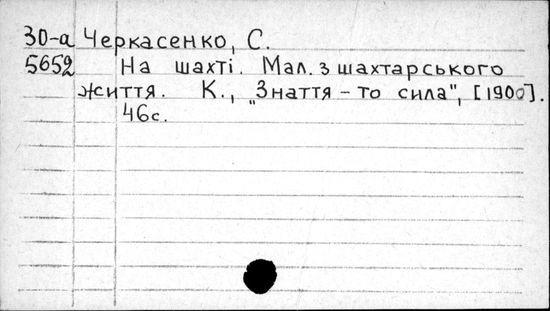 30-а Черкасенко, С.
5652 На шахті. Мал. з шахтарського
життя. К., "Знаття – то сила", [1900].
46с.